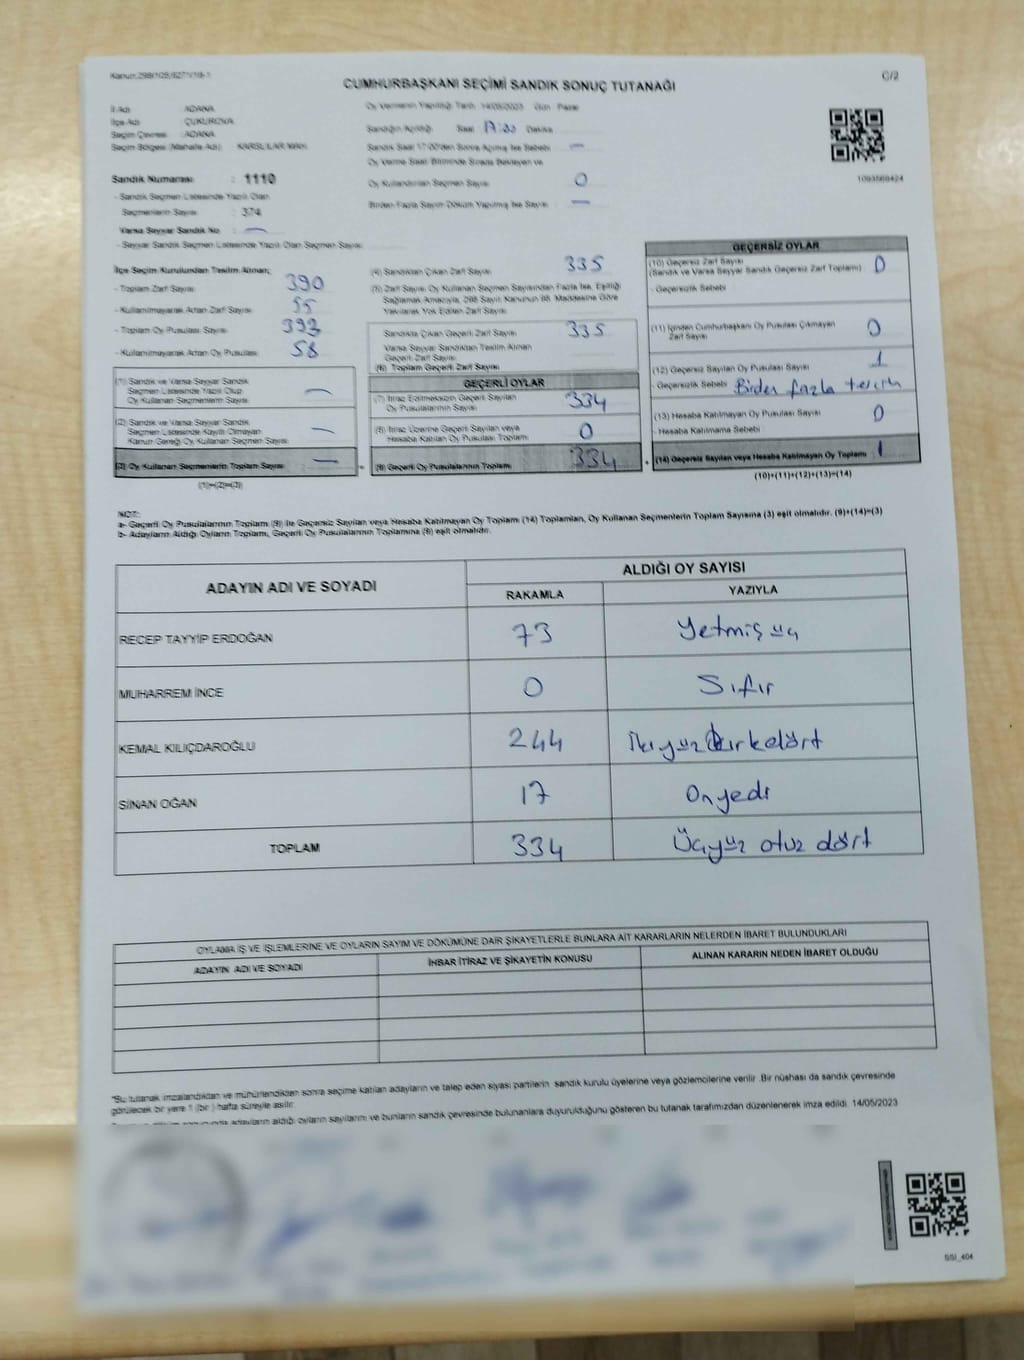 Kanun:298/105,6271/18-1
C/2
CUMHURBAŞKANI SEÇİMİ SANDIK SONUÇ TUTANAĞI
İl Adı : ADANA
İlçe Adı : ÇUKUROVA
Seçim Çevresi : ADANA
Seçim Bölgesi (Mahalle Adı) : KARSLILAR MAH.
Oy Vermenin Yapıldığı Tarih: 14/05/2023 Gün: Pazar
Sandığın Açıldığı Saat Dakika
Sandık Saat 17:00'den Sonra Açılmış İse Sebebi —
Oy Verme Saati Bitiminde Sırada Bekleyen ve
Oy Kullandırılan Seçmen Sayısı 0
Birden Fazla Sayım Döküm Yapılmış İse Sayısı —
1093568424
Sandık Numarası : 1110
- Sandık Seçmen Listesinde Yazılı Olan
Seçmenlerin Sayısı : 374
Varsa Seyyar Sandık No : —
- Seyyar Sandık Seçmen Listesinde Yazılı Olan Seçmen Sayısı
İlçe Seçim Kurulundan Teslim Alınan;
- Toplam Zarf Sayısı 390
- Kullanılmayarak Artan Zarf Sayısı 55
- Toplam Oy Pusulası Sayısı 392
- Kullanılmayarak Artan Oy Pusulası 58
(1) Sandık ve Varsa Seyyar Sandık
Seçmen Listesinde Yazılı Olup
Oy Kullanan Seçmenlerin Sayısı —
(2) Sandık ve Varsa Seyyar Sandık
Seçmen Listesinde Kayıtlı Olmayan
Kanun Gereği Oy Kullanan Seçmen Sayısı —
(3) Oy Kullanan Seçmenlerin Toplam Sayısı —
(1)+(2)=(3)
(4) Sandıktan Çıkan Zarf Sayısı 335
(5) Zarf Sayısı Oy Kullanan Seçmen Sayısından Fazla İse, Eşitliği
Sağlamak Amacıyla, 298 Sayılı Kanunun 98. Maddesine Göre
Yakılarak Yok Edilen Zarf Sayısı
Sandıkta Çıkan Geçerli Zarf Sayısı 335
Varsa Seyyar Sandıktan Teslim Alınan
Geçerli Zarf Sayısı
(6) Toplam Geçerli Zarf Sayısı
GEÇERLİ OYLAR
(7) İtiraz Edilmeksizin Geçerli Sayılan
Oy Pusulalarının Sayısı 334
(8) İtiraz Üzerine Geçerli Sayılan veya
Hesaba Katılan Oy Pusulası Toplam 0
(9) Geçerli Oy Pusulalarının Toplamı 334
GEÇERSİZ OYLAR
(10) Geçersiz Zarf Sayısı
(Sandık ve Varsa Seyyar Sandık Geçersiz Zarf Toplamı) 0
- Geçersizlik Sebebi
(11) İçinden Cumhurbaşkanı Oy Pusulası Çıkmayan
Zarf Sayısı 0
(12) Geçersiz Sayılan Oy Pusulası Sayısı 1
- Geçersizlik Sebebi Birden fazla tercih
(13) Hesaba Katılmayan Oy Pusulası Sayısı 0
- Hesaba Katılmama Sebebi
(14) Geçersiz Sayılan veya Hesaba Katılmayan Oy Toplamı 1
(10)+(11)+(12)+(13)=(14)
NOT:
a- Geçerli Oy Pusulalarının Toplam (9) ile Geçersiz Sayılan veya Hesaba Katılmayan Oy Toplam (14) Toplamları, Oy Kullanan Seçmenlerin Toplam Sayısına (3) eşit olmalıdır. (9)+(14)=(3)
b- Adayların Aldığı Oyların Toplamı, Geçerli Oy Pusulalarının Toplamına (9) eşit olmalıdır.
ADAYIN ADI VE SOYADI
ALDIĞI OY SAYISI
RAKAMLA YAZIYLA
RECEP TAYYİP ERDOĞAN 73 Yetmiş üç
MUHARREM İNCE 0 Sıfır
KEMAL KILIÇDAROĞLU 244 İkiyüz kırkdört
SİNAN OĞAN 17 Onyedi
TOPLAM 334 Üçyüz otuz dört
OYLAMA İŞ VE İŞLEMLERİNE VE OYLARIN SAYIM VE DÖKÜMÜNE DAİR ŞİKAYETLERLE BUNLARA AİT KARARLARIN NELERDEN İBARET BULUNDUKLARI
ADAYIN ADI VE SOYADI İHBAR İTİRAZ VE ŞİKAYETİN KONUSU ALINAN KARARIN NEDEN İBARET OLDUĞU
*Bu tutanak imzalandıktan ve mühürlendikten sonra seçime katılan adayların ve talep eden siyasi partilerin sandık kurulu üyelerine veya gözlemcilerine verilir. Bir nüshası da sandık çevresinde
görülecek bir yere 1 (bir) hafta süreyle asılır.
adayların aldığı oyların sayılarını ve bunların sandık çevresinde bulunanlara duyurulduğunu gösteren bu tutanak tarafımızdan düzenlenerek imza edildi. 14/05/2023
SSI_404